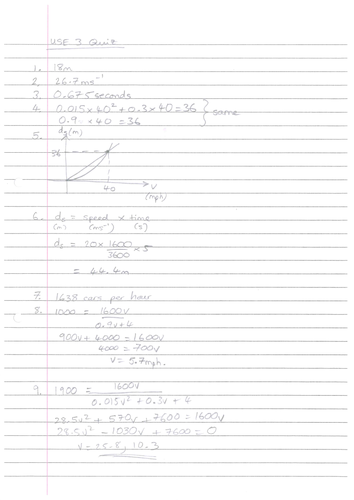 USE 3 Quiz
1. 18m
2. 26.7ms⁻¹
3. 0.675 seconds
4. 0.015×40² + 0.3×40 = 36 } same
0.9 × 40 = 36
5. ds(m)
36
40
V
(mph)
6. ds = speed × time
(m) (ms⁻¹) (s)
ds = 20 × 1600/3600 × 5
= 44.4m
7. 1638 cars per hour
8. 1000 = 1600v/0.9v+4
900v + 4000 = 1600v
4000 = 700v
v = 5.7mph.
9. 1900 = 1600v/0.015v² + 0.3v + 4
28.5v² + 570v + 7600 = 1600v
28.5v² - 1030v + 7600 = 0
v = 25.8, 10.3